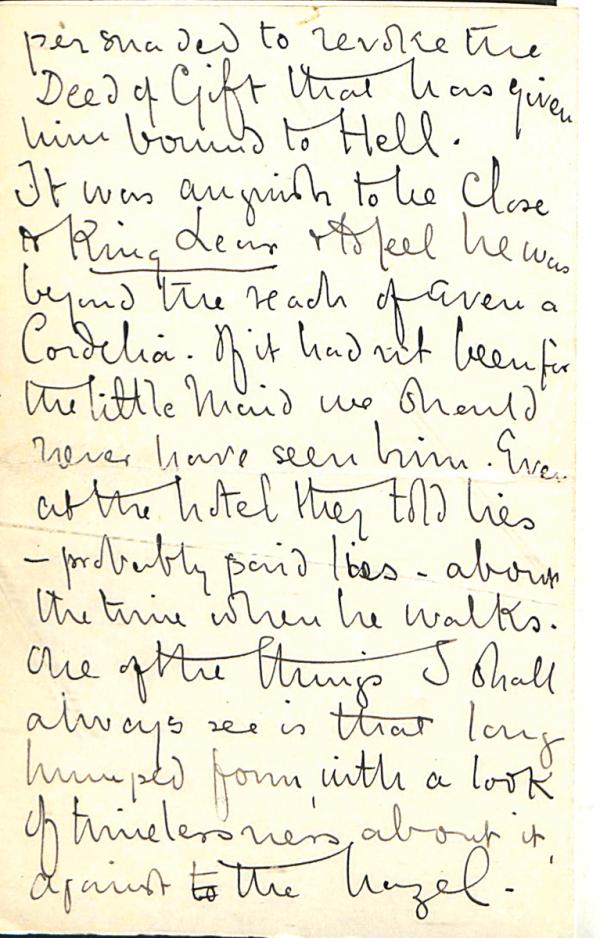 persuaded to revoke the
Deed of Gift that has given
him bound to Hell.
It was anguish to be close
to King Lear & to feel he was
beyond the reach of even a
Cordelia. If it hadn't been for
the little Maid we should
never have seen him. Even
at the hotel they told lies
– probably paid lies – about
the time when he walks.
One of the things I shall
always see is that long
humped form, with a look
of timelessness about it,
against to the hazel.